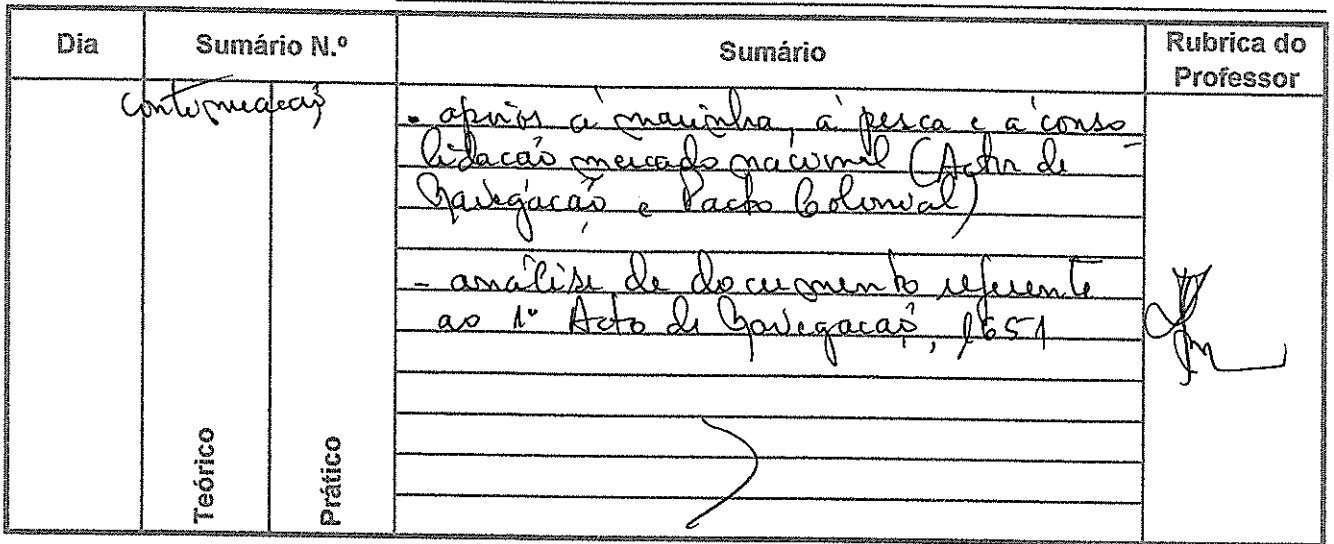 Dia Sumário N.º Sumário Rubrica do Professor
continuação
- apoios à marinha, à pesca e à conso
lidação mercado nacional (Actos de
Navegação e Pacto Colonial)
- análise de documento referente
ao 1º Acto de Navegação, 1651
Teórico
Prático